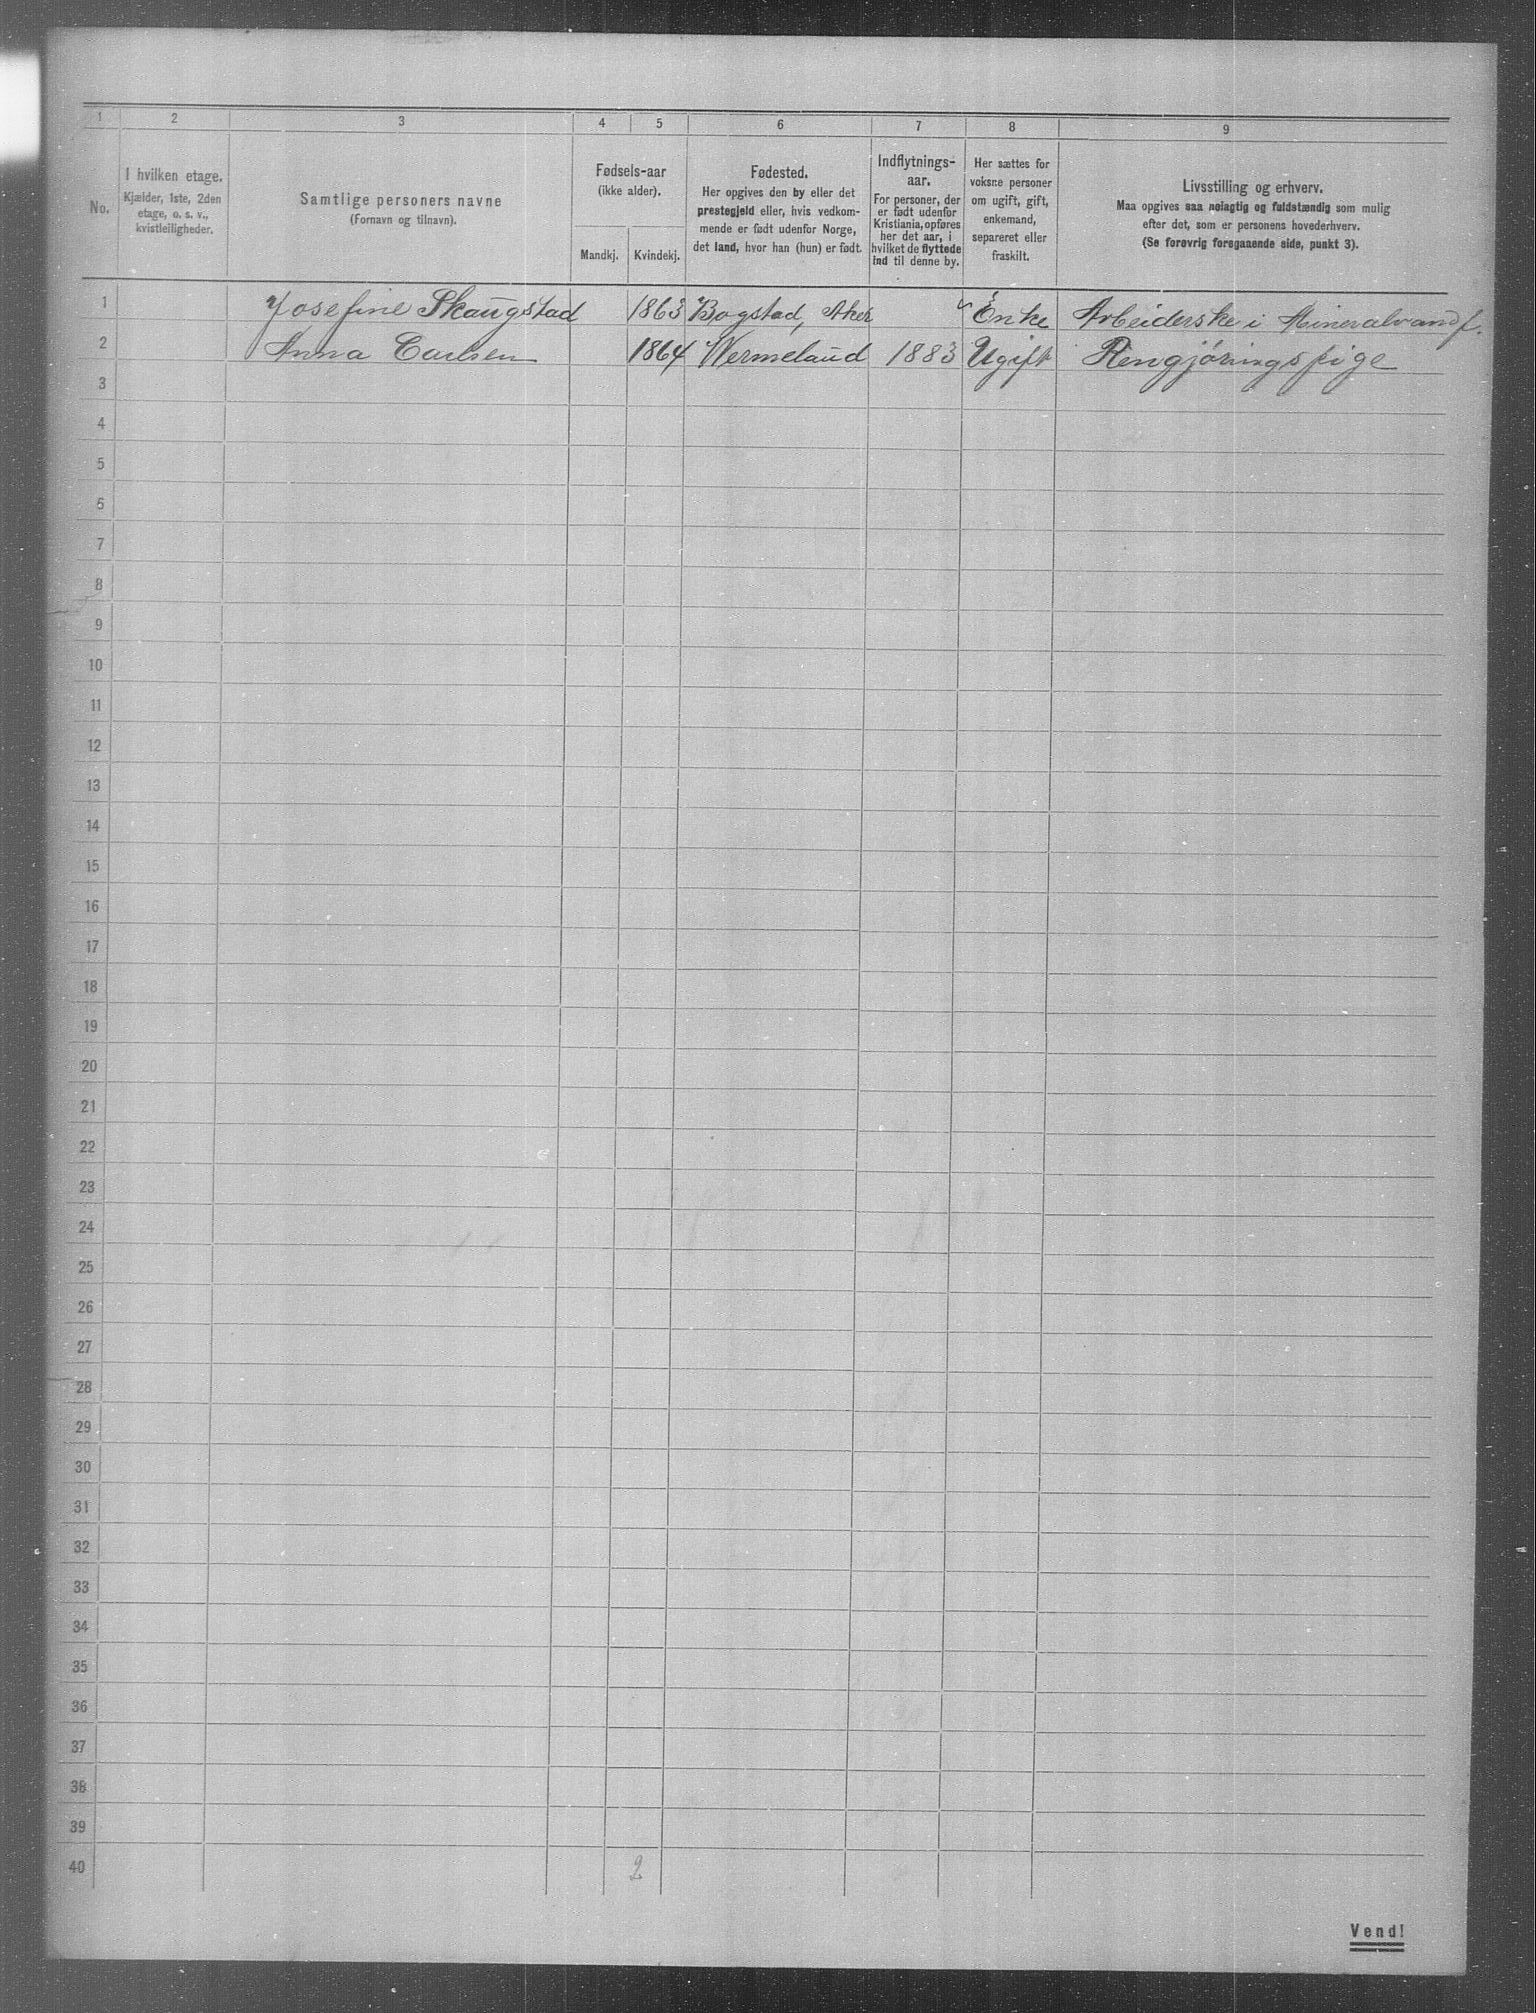 1 2 3 4 5 6 7 8 9
No.
I hvilken etage.
Kjælder, 1ste, 2den
etage, o. s. v.,
kvistleiligheder.
Samtlige personers navne
(Fornavn og tilnavn).
Fødsels-aar
(ikke alder).
Mandkj. Kvindekj.
Fødested.
Her opgives den by eller det
prestegjeld eller, hvis vedkom-
mende er født udenfor Norge,
det land, hvor han (hun) er født.
Indflytnings-
aar.
For personer, der
er født udenfor
Kristiania, opføres
her det aar, i
hvilket de flyttede
ind til denne by.
Her sættes for
voksne personer
om ugift, gift,
enkemand,
separeret eller
fraskilt.
Livsstilling og erhverv.
Maa opgives saa nøiagtig og fuldstændig som mulig
efter det, som er personens hovederhverv.
(Se forøvrig foregaaende side, punkt 3).
1 Josefine Skaugstad 1863 Bogstad, Aker Enke Arbeiderske i Mineralvandf.
2 Anna Carlsen 1864 Wermeland 1883 Ugift Rengjøringspige
3
4
5
6
7
8
9
10
11
12
13
14
15
16
17
18
19
20
21
22
23
24
25
26
27
28
29
30
31
32
33
34
35
36
37
38
39
40 2
Vend!